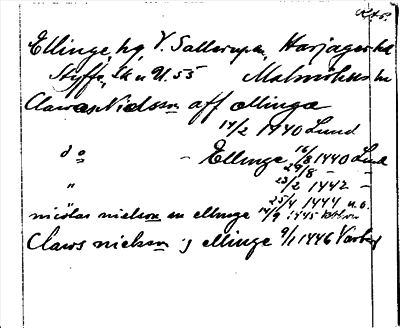 R.A.P.
Ellinge, hg V. Sallerup sn, Harjagers hd
Styffe, Sk u U. 55 Malmöhus län
Clawes Nielsson aff ællinga
14/2 1440 Lund
do - Ellinge 16/8 1440 Lund
29/8 - -
" 23/2 1442 -
25/4 1444 u.o.
niclas nielson en ellinge 14/9 1445
Claws nielson j ellinge 9/1 1446 Varberg